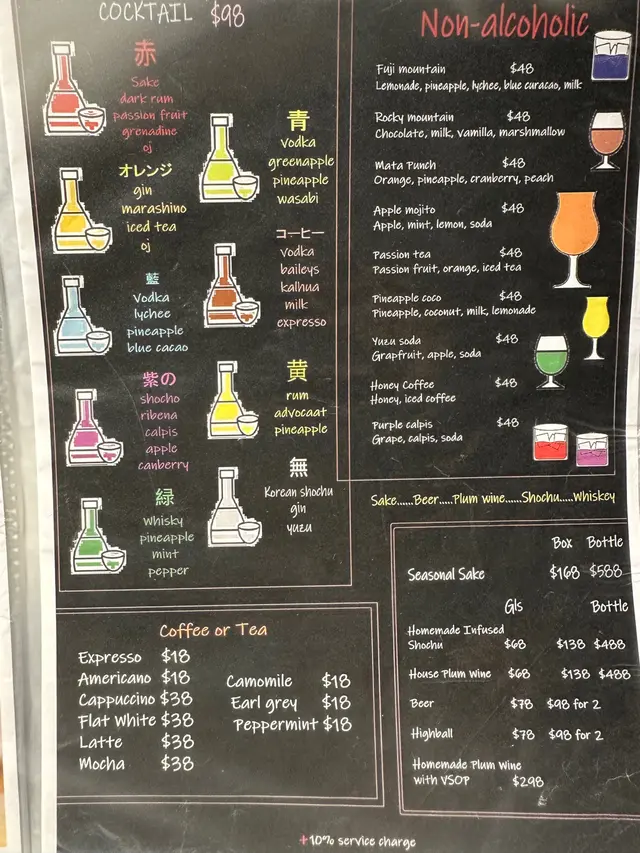 COCKTAIL $98
赤
Sake
dark rum
passion fruit
grenadine
oj
オレンジ
gin
marashino
iced tea
oj
藍
Vodka
lychee
pineapple
blue cacao
紫の
shocho
ribena
calpis
apple
canberry
緑
Whisky
pineapple
mint
pepper
青
Vodka
greenapple
pineapple
wasabi
コーヒー
Vodka
baileys
kalhua
milk
expresso
黄
rum
advocaat
pineapple
無
Korean shochu
gin
yuzu
Non-alcoholic
Fuji mountain $48
Lemonade, pineapple, lychee, blue curacao, milk
Rocky mountain $48
Chocolate, milk, vamilla, marshmallow
Mata Punch $48
Orange, pineapple, cranberry, peach
Apple mojito $48
Apple, mint, lemon, soda
Passion tea $48
Passion fruit, orange, iced tea
Pineapple coco $48
Pineapple, coconut, milk, lemonade
Yuzu soda $48
Grapfruit, apple, soda
Honey Coffee $48
Honey, iced coffee
Purple calpis $48
Grape, calpis, soda
Sake......Beer....Plum wine......Shochu.....Whiskey
Box Bottle
Seasonal Sake $168 $588
Gls Bottle
Homemade Infused
Shochu $68 $138 $488
House Plum Wine $68 $138 $488
Beer $78 $98 for 2
Highball $78 $98 for 2
Homemade Plum Wine
with VSOP $298
Coffee or Tea
Expresso $18
Americano $18
Cappuccino $38
Flat White $38
Latte $38
Mocha $38
Camomile $18
Earl grey $18
Peppermint $18
+10% service charge